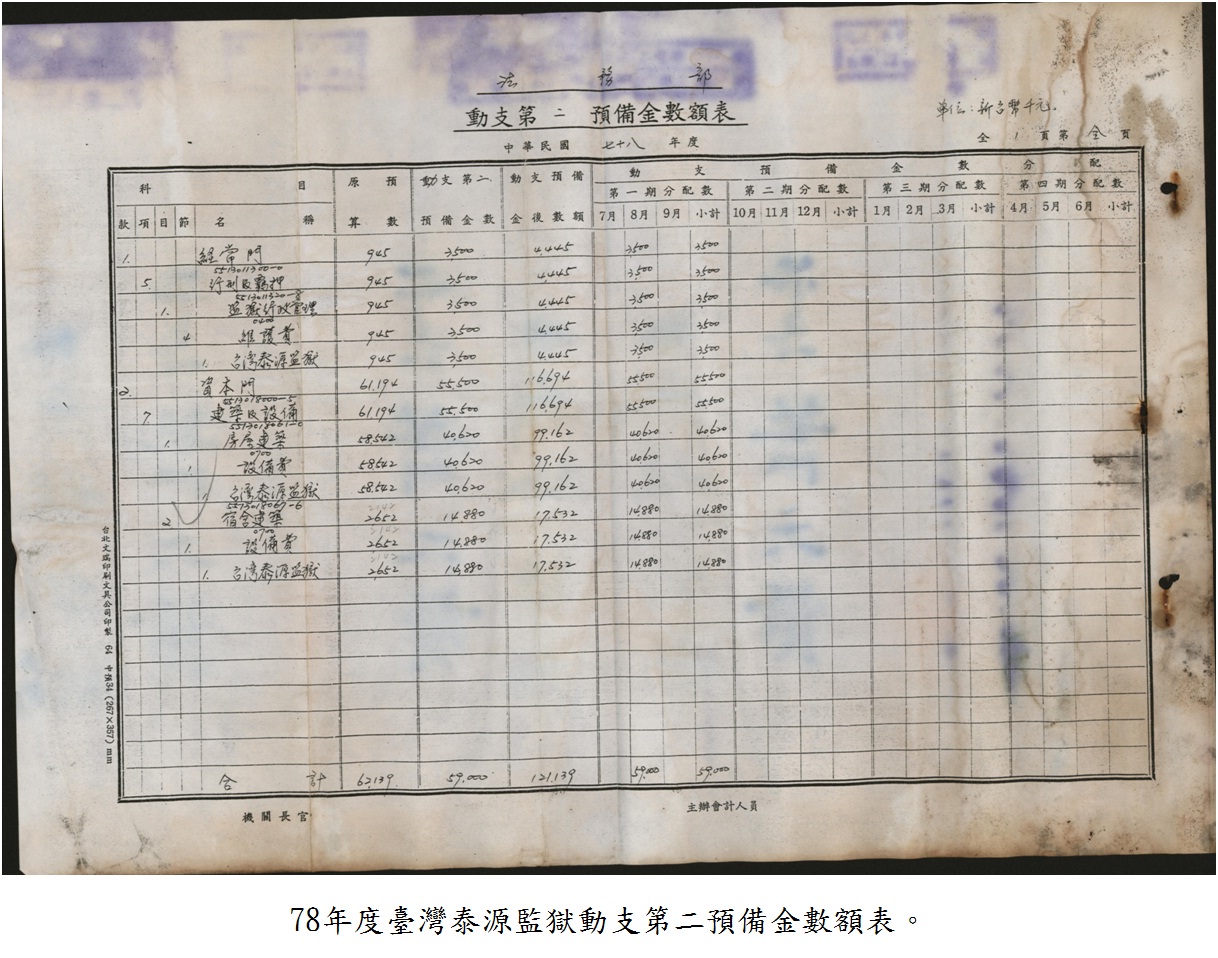 法務部
動支第二預備金數額表
單位:新台幣千元.
中華民國 七十八 年度
全 1 頁第 全 頁
科目 原預算數 動支第二預備金數 動支預備金後數額 動支預備金數分配
第一期分配數 第二期分配數 第三期分配數 第四期分配數
款 項 目 節 名稱 7月 8月 9月 小計 10月 11月 12月 小計 1月 2月 3月 小計 4月 5月 6月 小計
1. 經常門 945 3,500 4,445 3,500 3,500
5513011300-0
5. 行刑及羈押 945 3,500 4,445 3,500 3,500
5513011320
1. 監獄行政管理 945 3,500 4,445 3,500 3,500
0400
4 維護費 945 3,500 4,445 3,500 3,500
1. 台灣泰源監獄 945 3,500 4,445 3,500 3,500
2. 資本門 61,194 55,500 116,694 55,500 55,500
5513018000-5
7. 建築及設備 61,194 55,500 116,694 55,500 55,500
5513018061-0
1. 房屋建築 58,542 40,620 99,162 40,620 40,620
0700
1. 設備費 58,542 40,620 99,162 40,620 40,620
1. 台灣泰源監獄 58,542 40,620 99,162 40,620 40,620
5513018067-6
2. 宿舍建築 2,652 14,880 17,532 14,880 14,880
0700
1. 設備費 2,652 14,880 17,532 14,880 14,880
1. 台灣泰源監獄 2,652 14,880 17,532 14,880 14,880
合計 62,139 59,000 121,139 59,000 59,000
機關長官
主辦會計人員
台北文瑞印刷文具公司印製 64 中預34(267×357)mm
78年度臺灣泰源監獄動支第二預備金數額表。